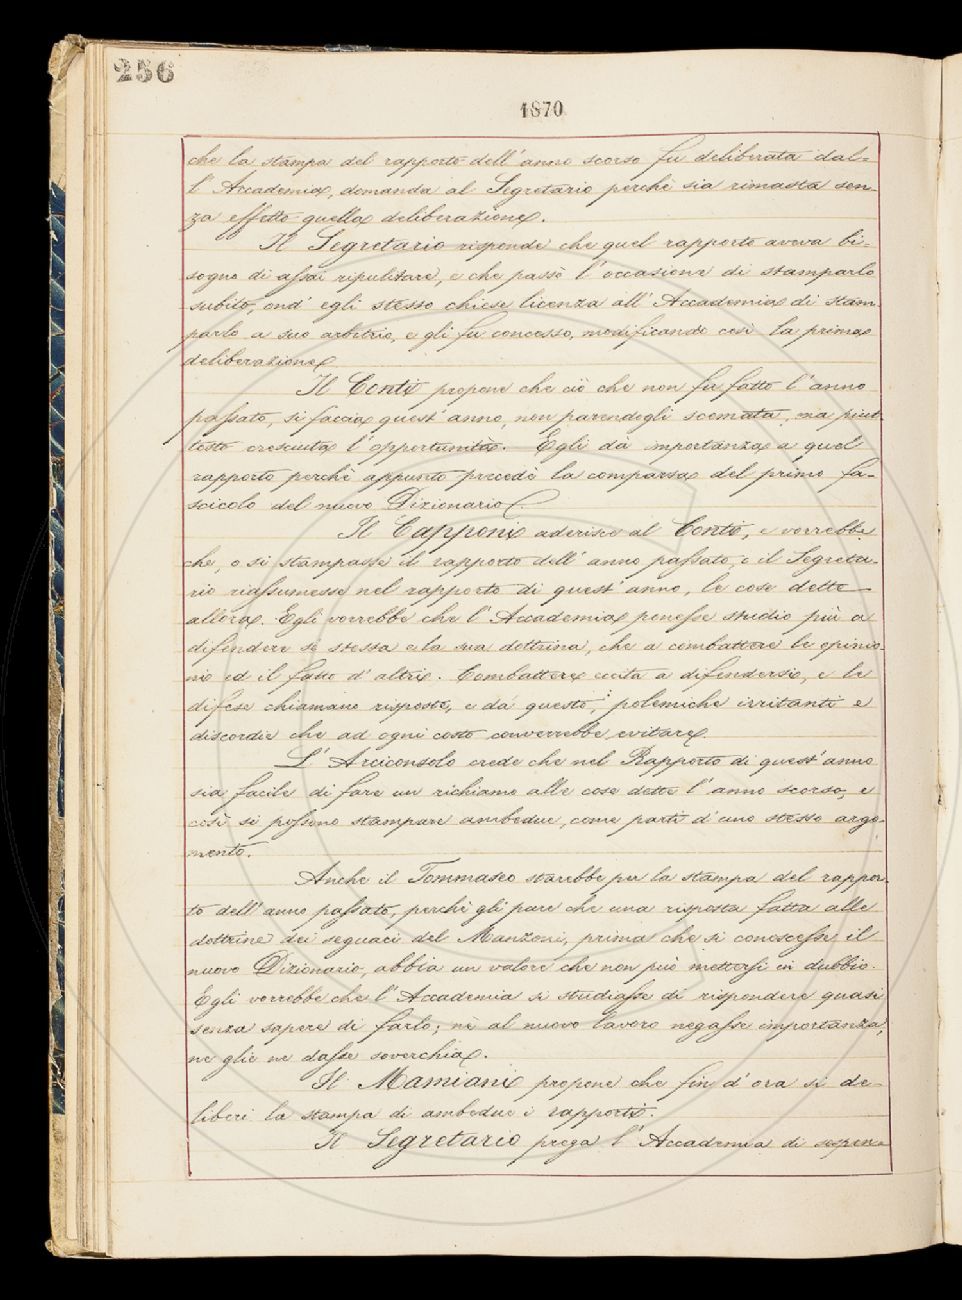 256
1870
che la stampa del rapporto dell' anno scorso fu deliberata dal=
l' Accademia, domanda al Segretario perchè sia rimasta sen-
za effetto quella deliberazione.
Il Segretario risponde che quel rapporto aveva bi=
sogno di assai ripulitare, e che passò l' occasione di stamparlo
subito, ond' egli stesso chiese licenza all' Accademia di stam-
parlo a suo arbitrio, e gli fu concesso, modificando così la prima
deliberazione
Il Conti propone che ciò che non fu fatto l' anno
passato, si faccia quest' anno, non parendogli scemata, ma piut-
tosto cresciuta l' opportunità. Egli dà importanza a quel
rapporto perchè appunto precedè la comparsa del primo fa=
scicolo del nuovo Dizionario.
Il Capponi aderisce al Conti, e vorrebbe
che, o si stampasse il rapporto dell' anno passato, o il Segreta-
rio riassumesse nel rapporto di quest' anno, le cose dette
allora. Egli vorrebbe che l' Accademia ponesse studio più a
difendere sè stessa e la sua dottrina, che a combattere le opinio-
ni ed il fatto d' altri. Combattere eccita a difendersi, e le
difese chiamano risposte, e da queste, polemiche irritanti e
discordie che ad ogni costo converrebbe evitare.
L' Arciconsolo crede che nel Rapporto di quest' anno
sia facile di fare un richiamo alle cose dette l' anno scorso, e
così si possono stampare ambedue, come parti d' uno stesso argo-
mento.
Anche il Tommaseo starebbe per la stampa del rappor-
to dell' anno passato, perchè gli pare che una risposta fatta alle
dottrine dei seguaci del Manzoni, prima che si conoscesse il
nuovo Dizionario, abbia un valore che non può mettersi in dubbio.
Egli vorrebbe che l' Accademia si studiasse di rispondere quasi
senza sapere di farlo; nè al nuovo lavoro negasse importanza,
ne glie ne dasse soverchia.
Il Mamiani propone che fin d' ora si de-
liberi la stampa di ambedue i rapporti.
Il Segretario prega l' Accademia di sospen=